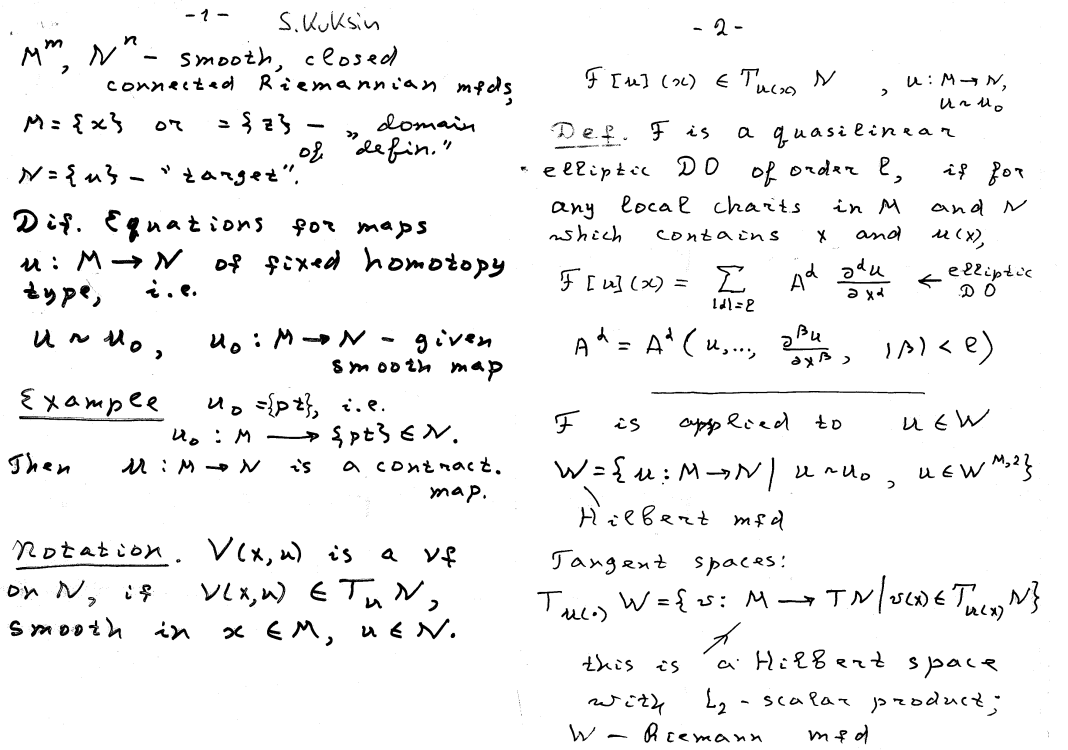 -1- S. Kuksin
Mᵐ, Nⁿ - smooth, closed
connected Riemannian mfds,
M = {x} or = {z} - „domain
of defin."
N = {u} - "target".
Dif. Equations for maps
u : M → N of fixed homotopy
type, i.e.
u ~ u₀, u₀ : M → N - given
smooth map
Example u₀ = {pt}, i.e.
u₀ : M ⟶ {pt} ∈ N.
Then u : M → N is a contract.
map.
Notation. V(x,u) is a vf
on N, if V(x,u) ∈ TᵤN,
smooth in x ∈ M, u ∈ N.
-2-
F[u](x) ∈ T_{u(x)} N , u : M → N,
u ~ u₀
Def. F is a quasilinear
elliptic DO of order l, if for
any local charts in M and N
which contains x and u(x),
F[u](x) = Σ_{|α|=l} A^α ∂^α u / ∂x^α ← elliptic
DO
A^α = A^α (u,..., ∂^β u / ∂x^β , |β| < l)
F is applied to u ∈ W
W = {u : M → N | u ~ u₀ , u ∈ W^{M,2}}
Hilbert mfd
Tangent spaces:
T_{u(·)} W = {v : M ⟶ TN | v(x) ∈ T_{u(x)} N}
this is a Hilbert space
with L₂ - scalar product;
W - Riemann mfd